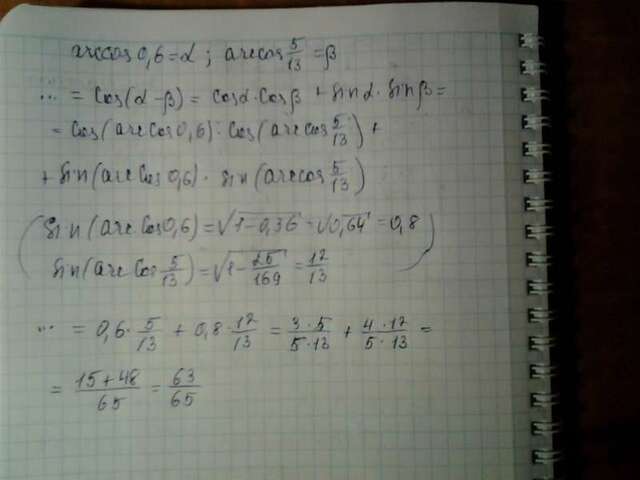 arccos 0,6 = α ; arccos 5/13 = β
... = cos(α-β) = cosα·cosβ + sinα·sinβ =
= cos(arccos 0,6)·cos(arccos 5/13) +
+ sin(arccos 0,6)· sin(arccos 5/13)
(sin(arccos 0,6) = √1-0,36 = √0,64 = 0,8
sin(arccos 5/13) = √1 - 25/169 = 12/13)
... = 0,6· 5/13 + 0,8· 12/13 = 3·5/5·13 + 4·12/5·13 =
= 15+48/65 = 63/65